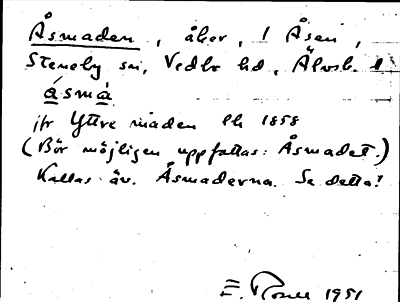 Åsmaden, åker, 1 Åsen,
Steneby sn, Vedbo hd, Älvsb. l
åsmà
jfr Yttre maden Lh 1858
(Bör möjligen uppfattas: Åsmadet.)
Kallas äv. Åsmaderna. Se detta!
E. 1951